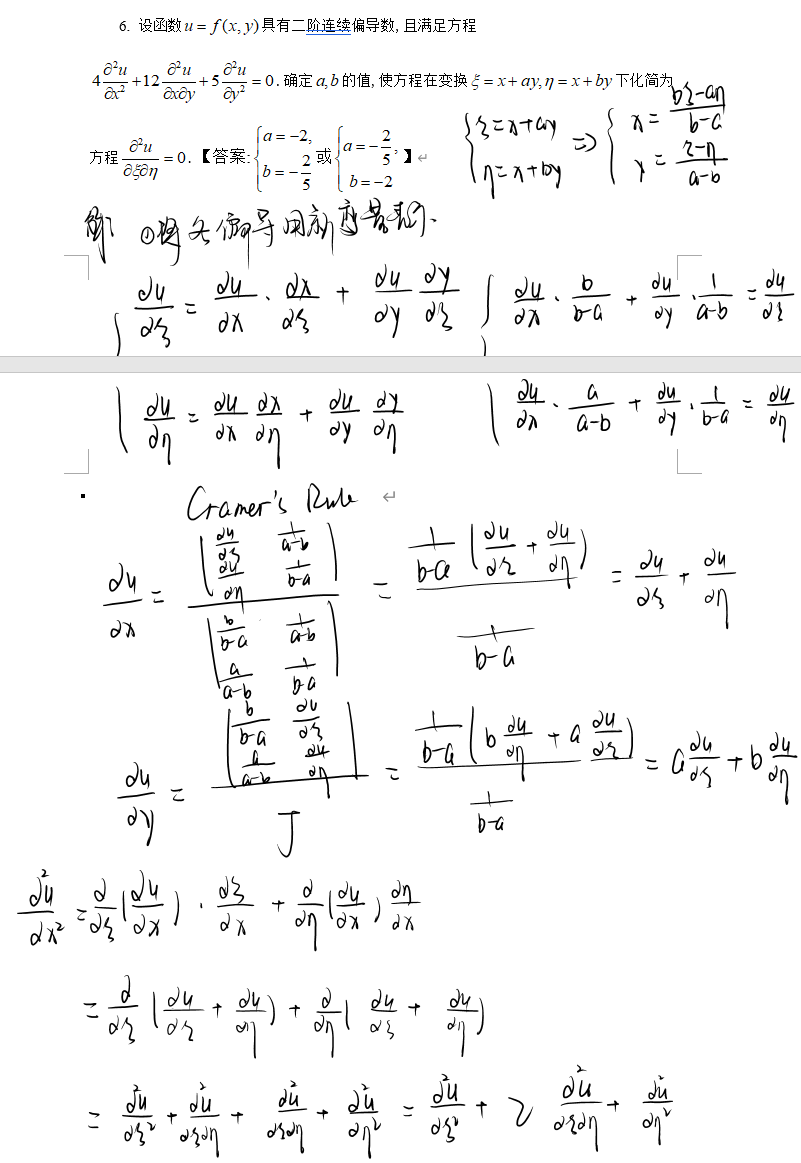 6. 设函数u = f(x, y)具有二阶连续偏导数, 且满足方程
4∂²u/∂x² + 12 ∂²u/∂x∂y + 5 ∂²u/∂y² = 0. 确定a, b的值, 使方程在变换ξ = x + ay, η = x + by下化简为
方程 ∂²u/∂ξ∂η = 0.【答案: {a = −2, b = −2/5 或 {a = −2/5, b = −2 】
{ξ=x+ay η=x+by ⇒ { x = (bξ−aη)/(b−a) y = (ξ−η)/(a−b)
解: ①将各偏导用新变量表示.
{ ∂u/∂ξ = ∂u/∂x · ∂x/∂ξ + ∂u/∂y ∂y/∂ξ { ∂u/∂x · b/(b−a) + ∂u/∂y · 1/(a−b) = ∂u/∂ξ
∂u/∂η = ∂u/∂x ∂x/∂η + ∂u/∂y ∂y/∂η ∂u/∂x · a/(a−b) + ∂u/∂y · 1/(b−a) = ∂u/∂η
Cramer's Rule
∂u/∂x = |∂u/∂ξ 1/(a−b) ; ∂u/∂η 1/(b−a)| / |b/(b−a) 1/(a−b) ; a/(a−b) 1/(b−a)| = 1/(b−a) (∂u/∂ξ + ∂u/∂η) / 1/(b−a) = ∂u/∂ξ + ∂u/∂η
∂u/∂y = |b/(b−a) ∂u/∂ξ ; a/(a−b) ∂u/∂η| / J = 1/(b−a) (b ∂u/∂η + a ∂u/∂ξ) / 1/(b−a) = a ∂u/∂ξ + b ∂u/∂η
∂²u/∂x² = ∂/∂ξ (∂u/∂x) · ∂ξ/∂x + ∂/∂η (∂u/∂x) ∂η/∂x
= ∂/∂ξ (∂u/∂ξ + ∂u/∂η) + ∂/∂η (∂u/∂ξ + ∂u/∂η)
= ∂²u/∂ξ² + ∂²u/∂ξ∂η + ∂²u/∂ξ∂η + ∂²u/∂η² = ∂²u/∂ξ² + 2 ∂²u/∂ξ∂η + ∂²u/∂η²